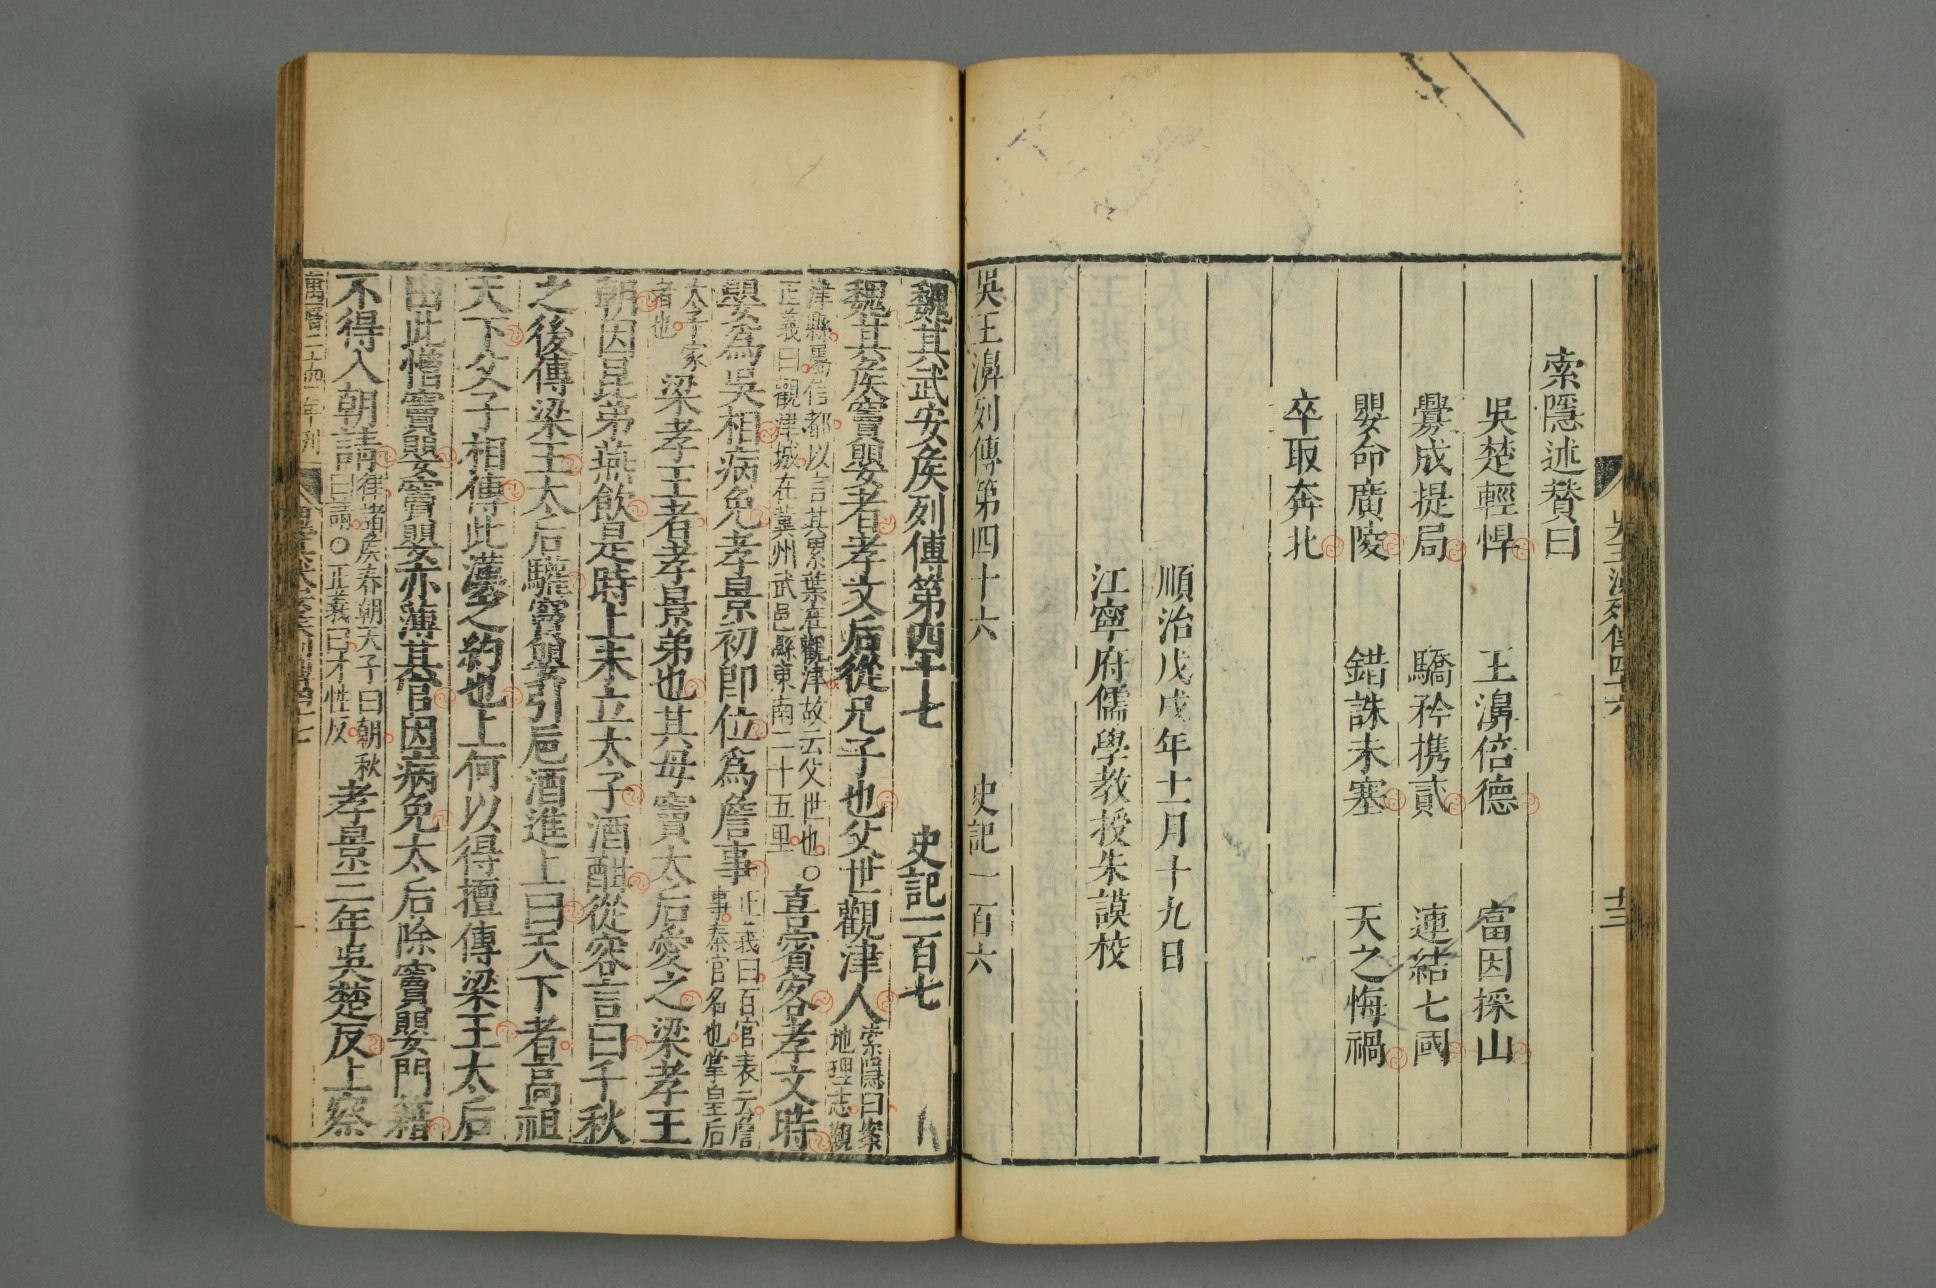 索隱述贊曰
吳楚輕悍　王濞倍德　富因採山
釁成提局　驕矜携貳　連結七國
嬰命廣陵　錯誅未塞　天之悔禍
卒取奔北
順治戊戌年十一月十九日
江寧府儒學教授朱謨校
吳王濞列傳第四十六　史記一百六
魏其武安矦列傳第四十七　史記一百七
魏其矦竇嬰者孝文后從兄子也父世觀津人索隱曰案地理志觀
津縣屬信都以言其累葉在觀津故云父世也○正義曰觀津城在冀州武邑縣東南二十五里喜賓客孝文時
嬰爲吳相病免孝景初卽位爲詹事正義曰百官表云詹事秦官名也掌皇后
太子家者也梁孝王者孝景弟也其母竇太后愛之梁孝王
朝因昆弟燕飲是時上未立太子酒酣從容言曰千秋
之後傳梁王太后驩竇嬰引巵酒進上曰天下者高祖
天下父子相傳此漢之約也上何以得擅傳梁王太后
由此憎竇嬰竇嬰亦薄其官因病免太后除竇嬰門籍
不得入朝請律諸矦春朝天子曰朝秋曰請○正義曰才性反孝景三年吳楚反上察
萬曆二十四年刊